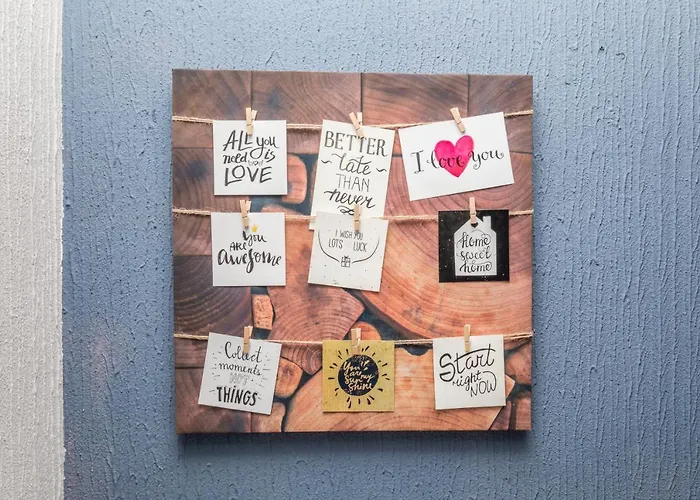 ALL you
need is
LOVE
BETTER
late
THAN
never
I love you
You
ARE
Awesome
I WISH YOU
LOTS LUCK
home
sweet
home
Collect
moments
NOT
THINGS
You
are my
sun
shine
Start
right
NOW